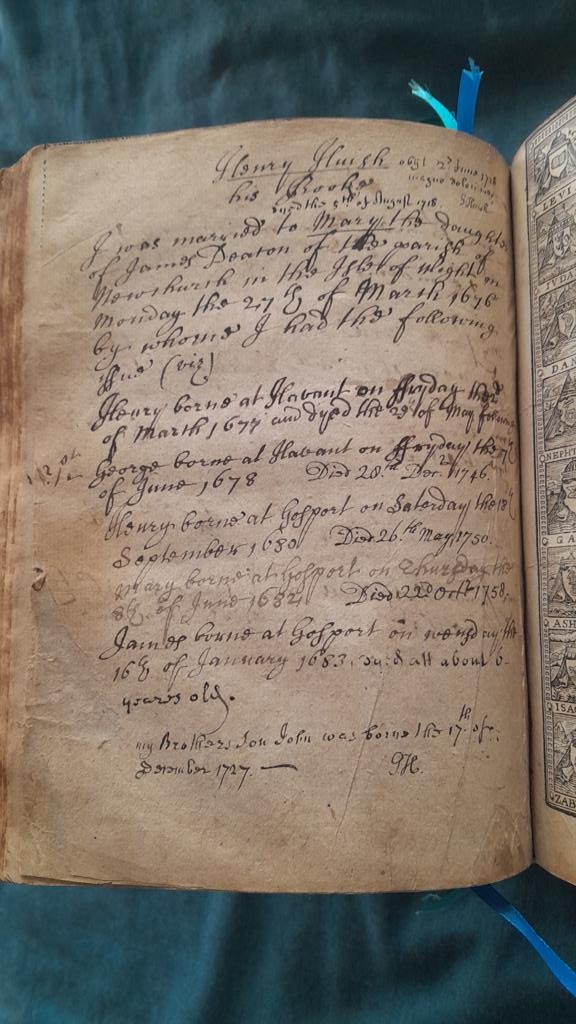 Henry Huish obyt 2d June 1718
his Booke magno dolori meo
G Huish
dyed the 5th of August 1718
I was married to Mary the daughter
of James Deaton of the parish of
Newchurch in the Isle of Wight on
Monday the 27th of March 1676
by whome I had the following
issue (viz)
Henry borne at Havant on ffryday the 2d
of March 1677 and dyed the 29 of May following
George borne at Havant on ffryday the 7th
of June 1678 Died 28th Decr 1746.
Henry borne at Gosport on Saterday the 18th
September 1680 Died 26th May 1750.
Mary borne at Gosport on Thursday the
8th of June 1682 Died 22d Octr 1758.
James borne at Gosport on wensday the
16th of January 1683. dyed att about 6
yeares old.
my Brothers Son John was borne the 17th of
December 1727. — GH.
LEVI
JVDA
DAN
NEPHT
GA
ASH
ISA
ZAB